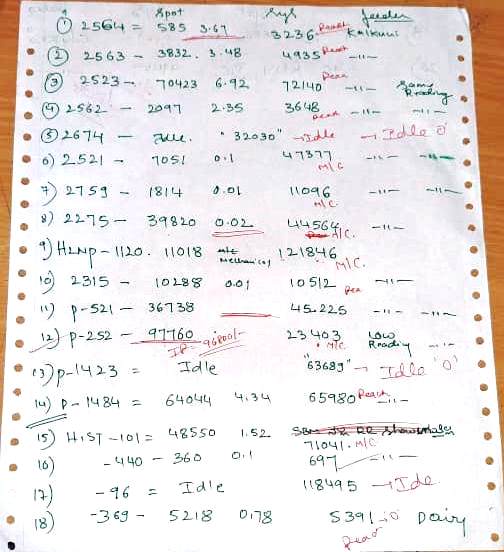 Spot Sys feeder
1) 2564 = 585 3.67 3236 Kalkuni
2) 2563 - 3832. 3.48 4935 -11-
3) 2523 - 70423 6.92 72140 -11- Same Reading
4) 2562 - 2097 2.35 3648 -11- -11-
5) 2674 - Idle. "32030" → Idle → Idle 'o'
6) 2521 - 7051 0.1 47377 M/C -11- -11-
7) 2759 - 1814 0.01 11096 M/C. -11- -11-
8) 2275 - 39820 0.02 44564 M/C. -11-
9) H2NP-1120. 11018 Mechanical 121846 M/C.
10) 2315 - 10288 0.01 10512 -11-
11) P-521 - 36738 45225 -11- -11-
12) P-252 - 97760 23403 M/C Low Reading -11-
IR = 96800/-
13) P-1423 = Idle "63689" → Idle 'O'
14) P-1484 = 64044 4.34 65980 -11-
15) HIST-101 = 48550 1.52 71041. M/C
16) -440 - 360 0.1 697 -11-
17) -96 = Idle 118495 → Idle
18) -369 - 5218 0.78 5391 Dairy